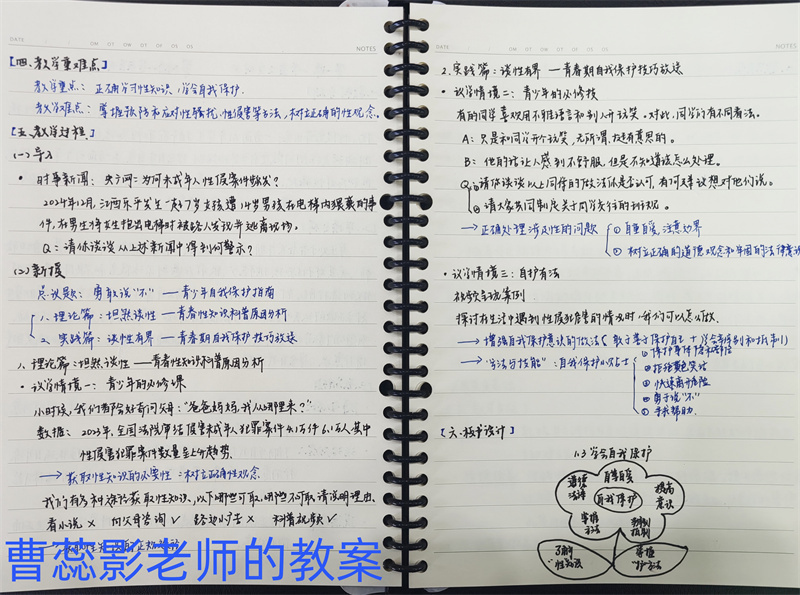 DATE
NOTES
【四、教学重难点】
教学重点：正确学习性知识，学会自我保护.
教学难点：掌握预防和应对性骚扰、性侵害等方法，树立正确的性观念.
【五、教学过程】
(一) 导入
• 时事新闻：央广网：为何未成年人性侵案件频发？
2024年12月，江西乐平发生一起7岁女孩遭14岁男孩在电梯内猥亵的事
件，在男生将女生抱出电梯时被路人发现并
Q：请你谈谈从上述新闻中得到何警示？
(二) 新授
总议题：勇敢说“不”——青少年自我保护指南
1. 理论篇：坦然谈性——青春性知识科普原因分析
2. 实践篇：谈性有界——青春期自我保护技巧放送
1. 理论篇：坦然谈性——青春性知识科普原因分析
• 议学情境一：青少年的必修课
小时候，我们都会好奇问父母：“爸爸妈妈，我从哪里来？”
数据：2023年，全国法院审结侵害未成年人犯罪案件4.1万件6.1万人，其中
性侵害犯罪案件数量呈上升趋势.
→ 获取性知识的必要性：树立正确性观念.
我们有多种途径获取性知识，以下哪些可取，哪些不可取，请说明理由.
看小说 × 向父母咨询 √ 路边小广告 × 科普视频 √
DATE
NOTES
2. 实践篇：谈性有界——青春期自我保护技巧放送
• 议学情境二：青少年的必修技
有的同学喜欢用不雅语言和别人开玩笑。对此，同学们有不同看法。
A：只是和同学开个玩笑，无所谓，挺有意思的。
B：他的话让人感到不舒服，但是不知道该怎么处理。
Q：① 请你谈谈以上同学的做法你是否认可，有何建议想对他们说。
② 请大家共同制定关于同学交往的
→ 正确处理涉及性的问题 ① 自重自爱，注意边界
② 树立正确的道德观念和牢固的法律意识
• 议学情境三：自护有法
视频
探讨在生活中遇到性侵犯危害的情况时，我们可以怎么做.
→ 增强自我保护意识的做法（敢于善于保护自己 + 学会辨别和抵制）
→ “守法与技能”：自我保护小贴士
② 拒绝黄色笑话
③ 快速离开危险
④ 勇于说“不”
⑤ 寻求帮助
【六、板书设计】
1.3 学会自我保护
自尊自爱
道德
法律
自我保护
提高
意识
掌握
方法
辨别
抵制
了解
“性”知识
掌握
“护”方法
曹蕊影老师的教案